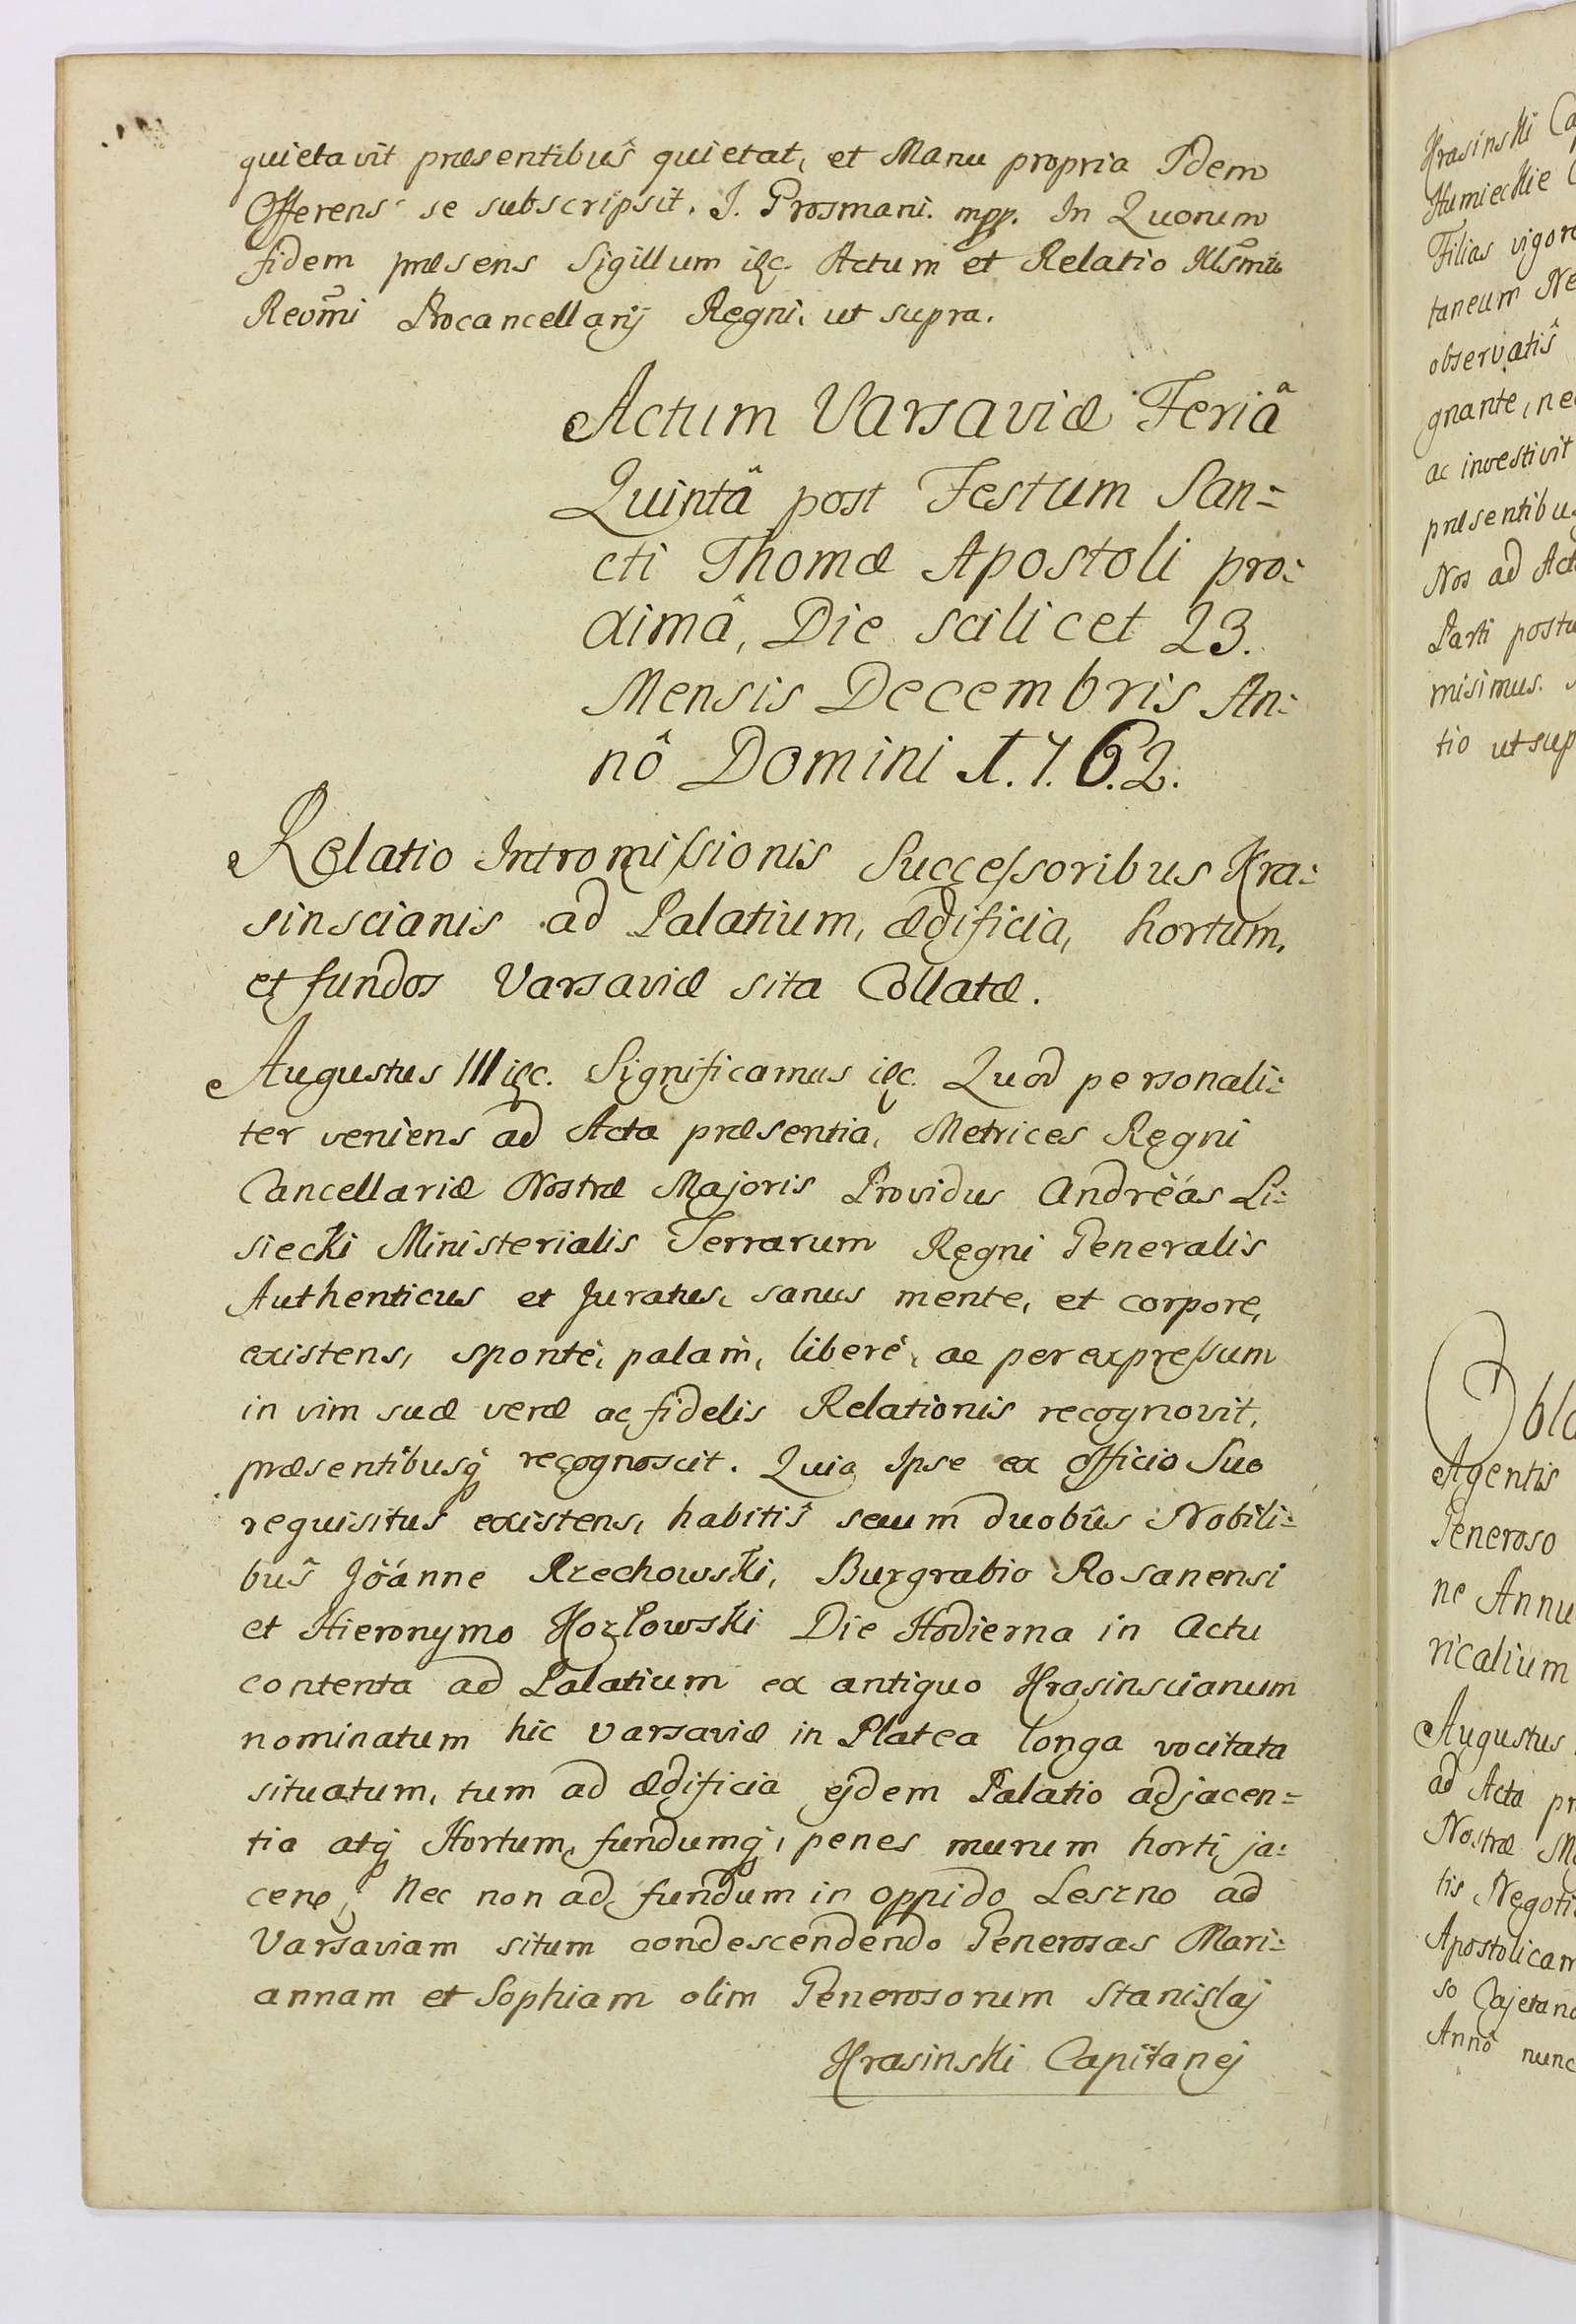 quietavit præsentibus̃ quietat, et Manu propria Idem
Offerens se subscripsit. J. Prosmani. mpp. In Quorum
fidem præsens Sigillum &c. Actum et Relatio Illsm̃i
Revm̃i Procancellarij Regni, ut supra.
Actum Varsaviæ Feriâ
Quintâ post Festum San=
cti Thomæ Apostoli pro=
ximâ, Die scilicet 23.
Mensis Decembris An=
nô Domini 1.7.6.2.
Relatio Intromissionis Successoribus Kra=
sinscianis ad Palatium, ædificia, hortum,
et fundos Varsaviæ sita Collatæ.
Augustus III &c. Significamus &c. Quod personali=
ter veniens ad Acta præsentia, Metrices Regni
Cancellariæ Nostræ Majoris Providus Andrëas Li=
siecki Ministerialis Terrarum Regni Generalis
Authenticus et Juratus, sanus mente, et corpore,
existens, sponte, palam, liberè, ac per expressum
in vim suæ veræ ac fidelis Relationis recognovit,
præsentibusq recognoscit. Quia Ipse ex officio Suo
requisitus existens, habitis̃ secum duobus̃ Nobili=
bus̃ Jöánne Rzechowski, Burgrabio Rosanensi
et Hieronymo Kozłowski Die Hodierna in Actu
contenta ad Palatium ex antiquo Krasinscianum
nominatum hic Varsaviæ in Platea longa vocitata
situatum, tum ad ædificia ejdem Palatio adjacen=
tia atq Hortum, fundumq, penes murum horti ja=
cene, Nec non ad fundum in oppido Leszno ad
Varsaviam situm condescendendo Generosas Mari=
annam et Sophiam olim Generosorum Stanislaj
Krasinski Capitanej
Krasinski
Humieckie
Filias vigore
taneum Ne
observatis̃
gnante, nec
ac investivit
præsentibus
Nos ad Act
Parti postu
misimus.
tio ut sup
Obla
Agentis
Generoso
ne Annu
ricalium
Augustus
ad Acta pr
Nostræ Ma
tis Negoti
Apostolicam
so Cajetano
Annô nunc